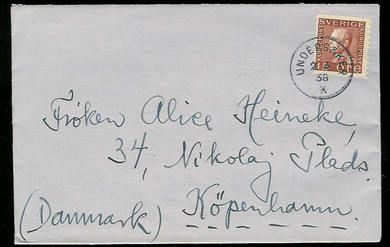 SVERIGE
15 ÖRE
UNDERSÅKER
36
Fröken Alice Heineke,
34, Nikolaj Plads.
Köpenhamn.
(Danmark)